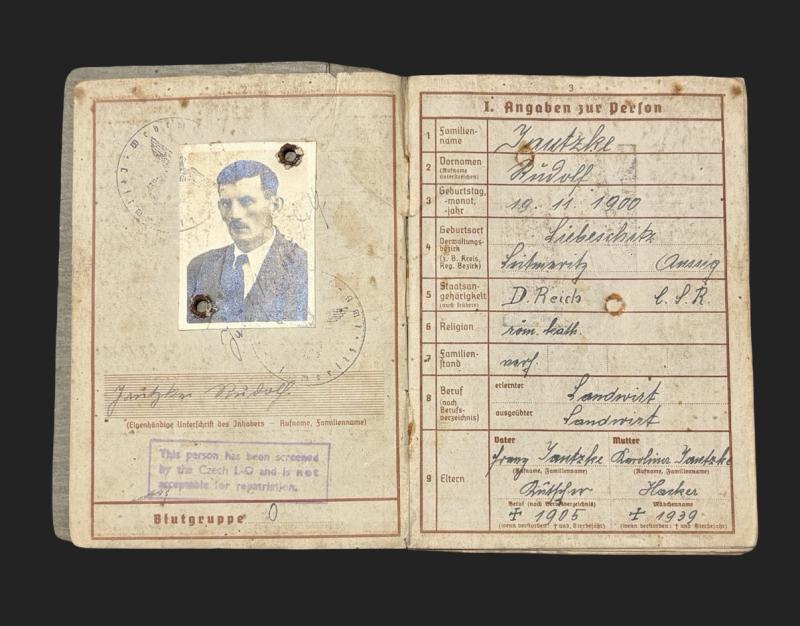 2
Jautzke Rudolf
(Eigenhändige Unterschrift des Inhabers — Rufname, Familienname)
This person has been screened
by the Czech L-O and is not
acceptable for repatriation.
Blutgruppe 0
3
I. Angaben zur Person
1 Familien-
name
Jautzke
2 Vornamen
(Rufname
unterstreichen)
Rudolf
3 Geburtstag,
-monat,
-jahr
19. 11. 1900
4 Geburtsort
Verwaltungs-
bezirk
(z. B. Kreis,
Reg. Bezirk)
Liebeschitz
Leitmeritz Aussig
5 Staatsan-
gehörigkeit
(auch frühere)
D. Reich Č.S.R.
6 Religion
röm. kath.
7 Familien-
stand
verh.
8 Beruf
(nach
Berufs-
verzeichnis)
erlernter
Landwirt
ausgeübter
Landwirt
9 Eltern
Vater Mutter
Franz Jautzke Karolina Jautzke
(Rufname, Familienname) (Rufname, Familienname)
Kutscher Hacker
Beruf (nach Berufsverzeichnis) Mädchenname
† 1905 † 1939
(wenn verstorben: † und Sterbejahr) (wenn verstorben: † und Sterbejahr)